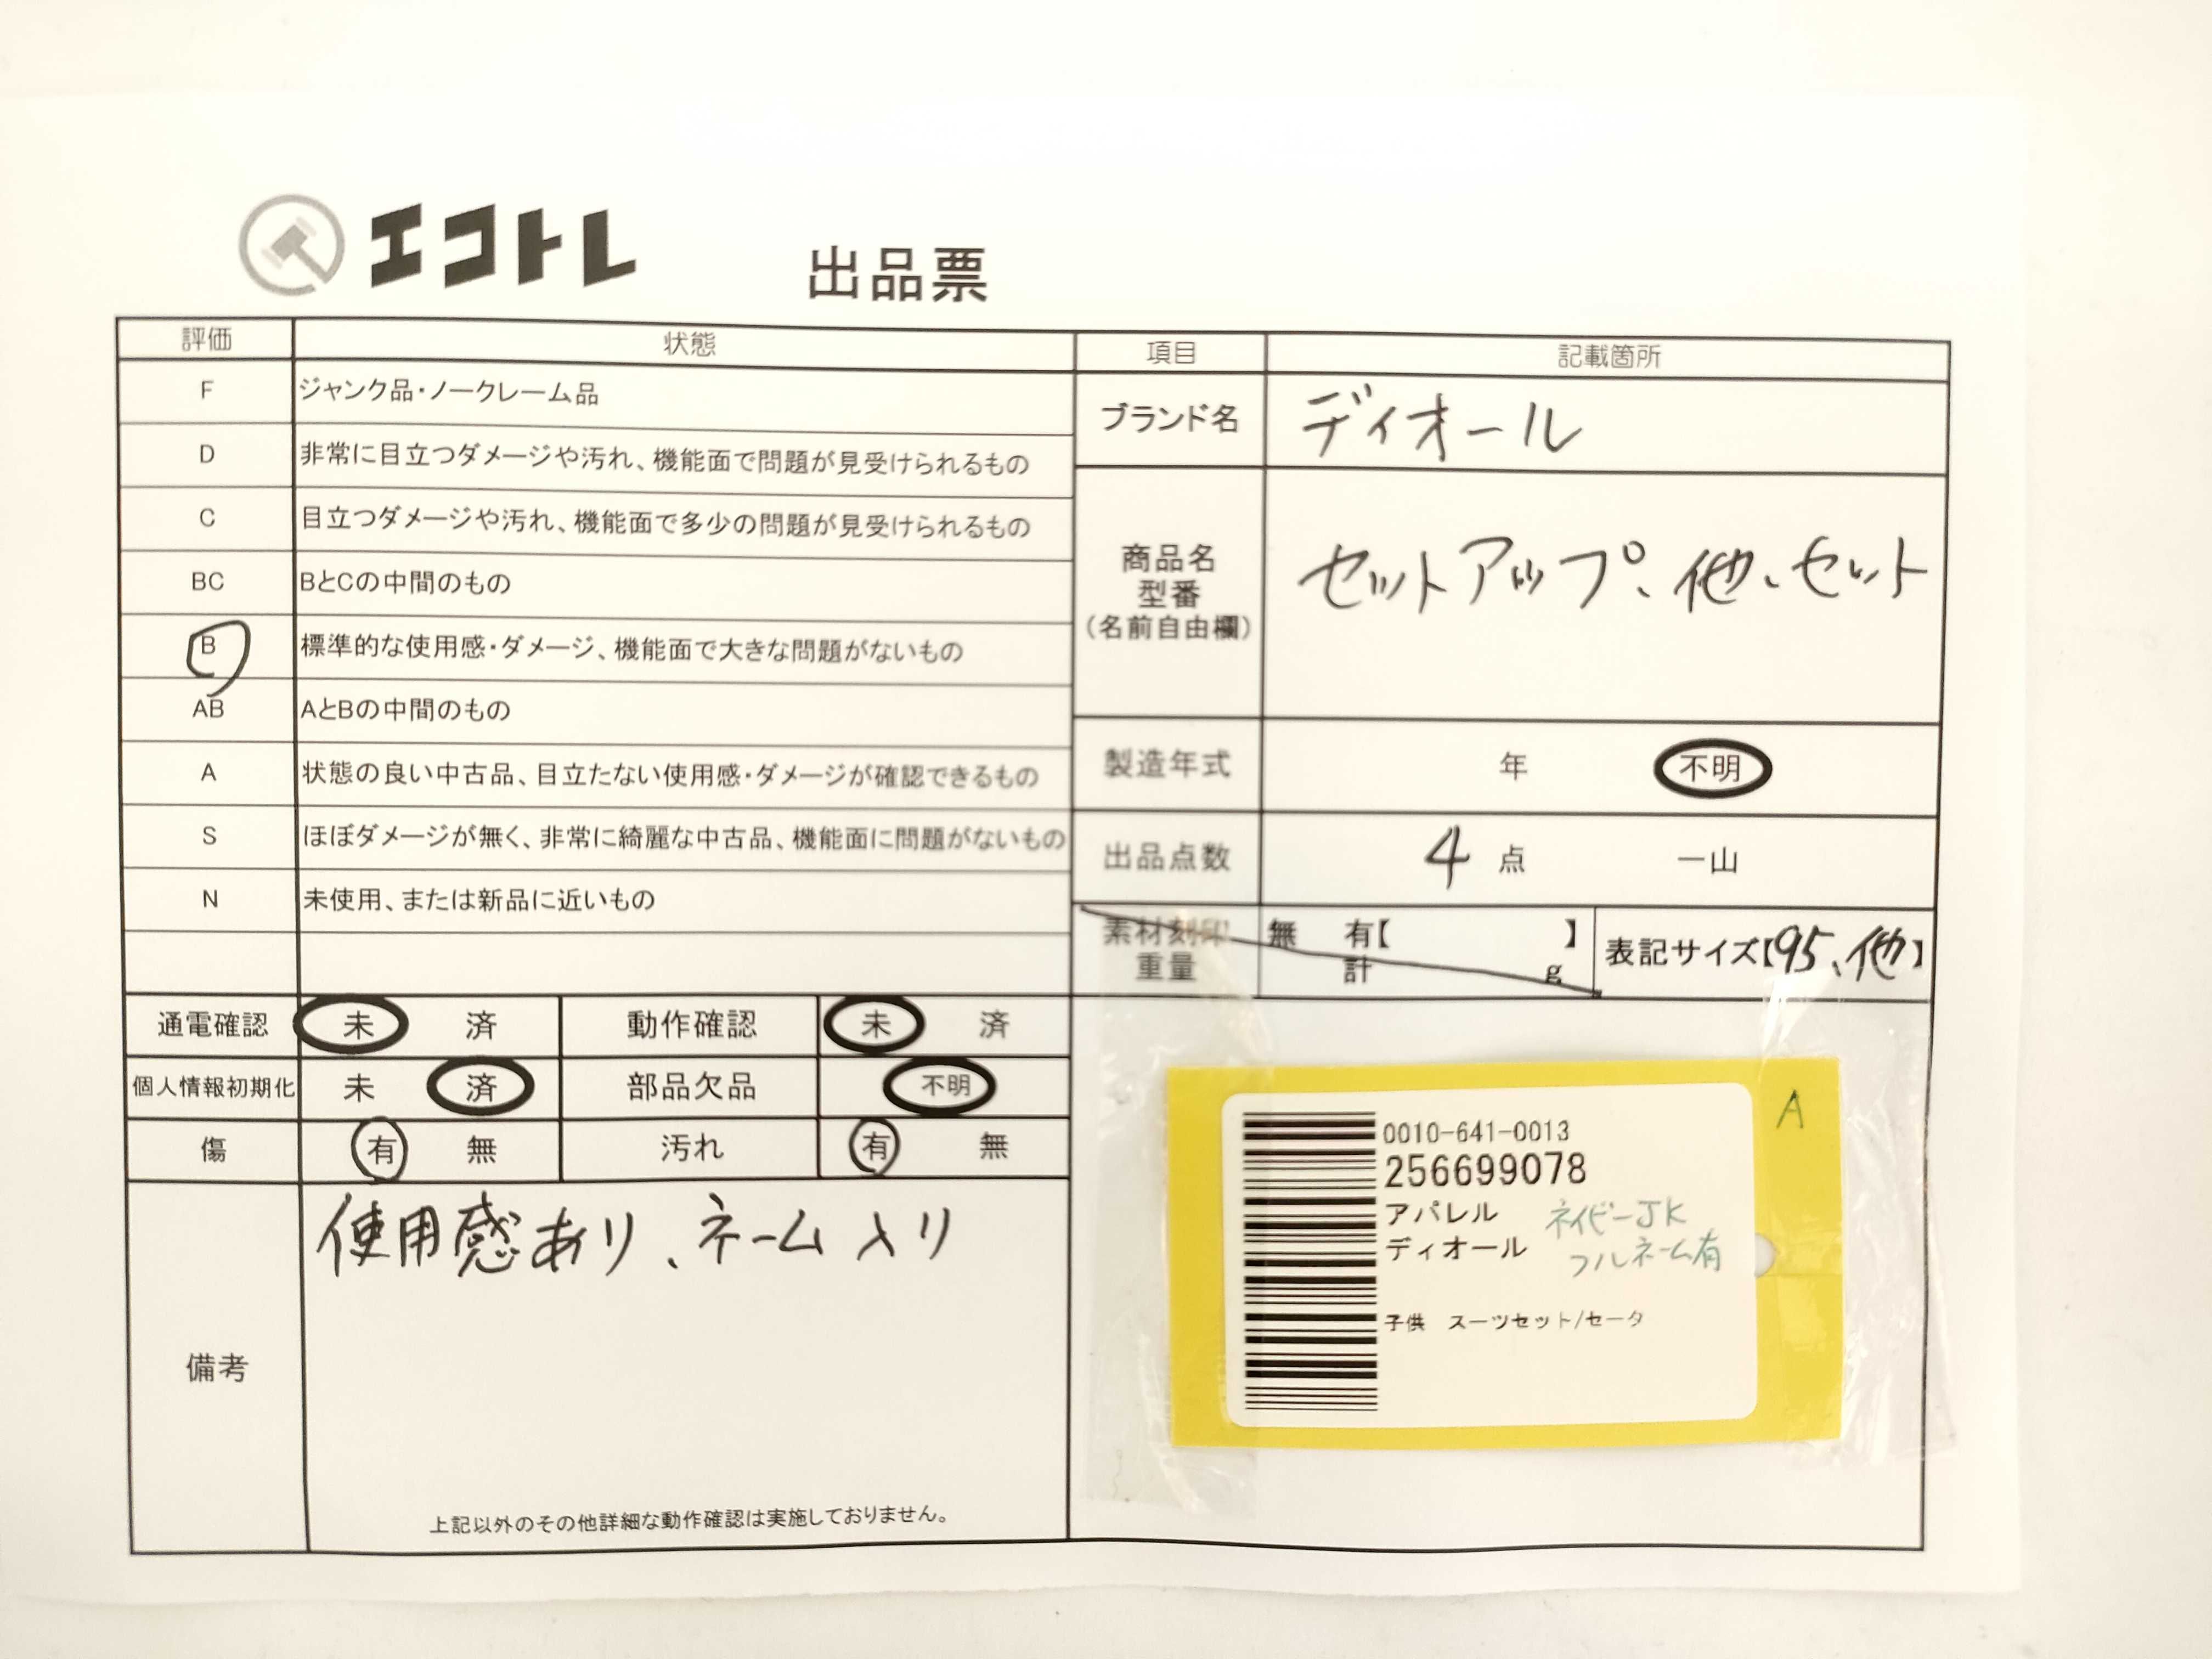 エコトレ
出品票
評価 状態
F ジャンク品・ノークレーム品
D 非常に目立つダメージや汚れ、機能面で問題が見受けられるもの
C 目立つダメージや汚れ、機能面で多少の問題が見受けられるもの
BC BとCの中間のもの
B 標準的な使用感・ダメージ、機能面で大きな問題がないもの
AB AとBの中間のもの
A 状態の良い中古品、目立たない使用感・ダメージが確認できるもの
S ほぼダメージが無く、非常に綺麗な中古品、機能面に問題がないもの
N 未使用、または新品に近いもの
項目 記載箇所
ブランド名 ディオール
商品名
型番
(名前自由欄)
セットアップ、他、セット
製造年式 年 不明
出品点数 4 点 一山
素材刻印 無 有【 】
重量 計 g
表記サイズ【95、他】
通電確認 未 済 動作確認 未 済
個人情報初期化 未 済 部品欠品 不明
傷 有 無 汚れ 有 無
備考
使用感あり、ネーム入り
上記以外のその他詳細な動作確認は実施しておりません。
A
0010-641-0013
256699078
アパレル ネイビーJK
ディオール フルネーム有
子供 スーツセット/セータ